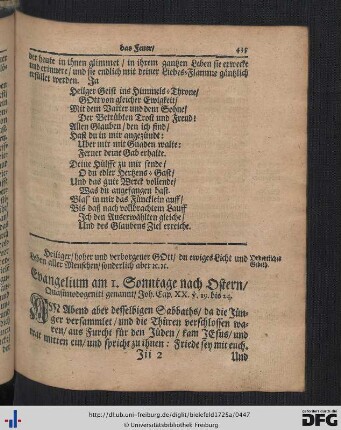 das Feuer/ 435
der heute in ihnen glimmet / in ihrem gantzen Leben sie erwecke
und ermuntere / und sie endlich mit deiner Liebes-Flamme gäntzlich
erfüllet werden. Ja
Heilger Geist ins Himmels-Throne/
GOtt von gleicher Ewigkeit/
Mit dem Vatter und dem Sohne/
Der Betrübten Trost und Freud!
Allen Glauben / den ich find/
Hast du in mir angezündt:
Uber mir mit Gnaden walte:
Ferner deine Gab erhalte.
Deine Hülffe zu mir sende/
O du edler Hertzens-Gast/
Und das gute Werck vollende/
Was du angefangen hast.
Blas' in mir das Füncklein auff/
Biß daß nach vollbrachtem Lauff
Ich den Auserwählten gleiche/
Und des Glaubens Ziel erreiche.
Heiliger / hoher und verborgener GOtt / du ewiges Licht und
Leben aller Menschen / sonderlich aber ꝛc.ꝛc.
Gebeth.
Evangelium am 1. Sonntage nach Ostern/
Quasimodogeniti genannt / Joh. Cap. XX. v. 19. bis 24.
AM Abend aber desselbigen Sabbaths / da die Jün-
ger versammlet / und die Thüren verschlossen wa-
ren / aus Furcht für den Jüden / kam JEsus / und
trat mitten ein / und spricht zu ihnen: Friede sey mit euch.
Jii 2 Und
http://dl.ub.uni-freiburg.de/diglit/bielefeld1725a/0447
© Universitätsbibliothek Freiburg
gefördert durch die
DFG